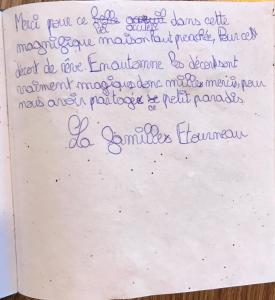 Merci pour ce bel accueil dans cette
magnifique maison tant penchée, Pour cet
décort de rêve. En automne les décort sont
vraiment magique donc milles mercis pour
nous avoir partager ce petit paradis
La familles Etourneau